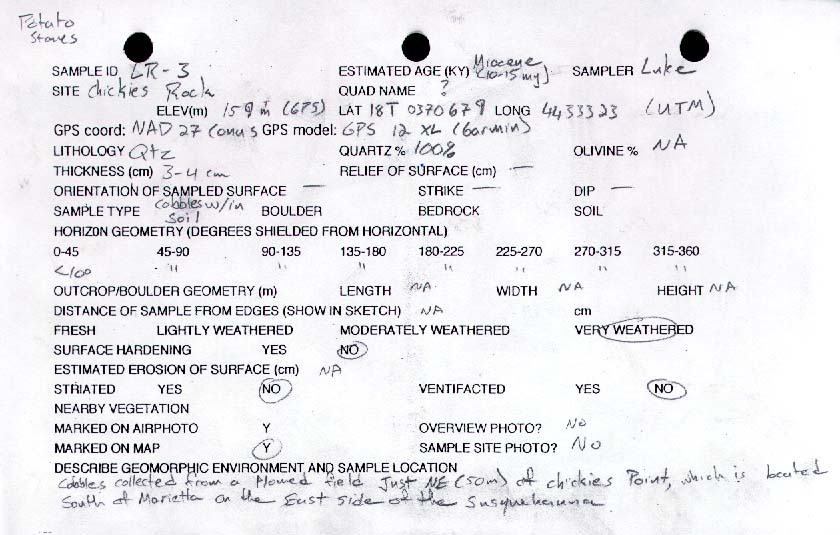 Potato
Stones
SAMPLE ID LR-3 ESTIMATED AGE (KY) Miocene (10-15 my) SAMPLER Luke
SITE Chickies Rock QUAD NAME ?
ELEV(m) 159 m (GPS) LAT 18T 0370679 LONG 4433323 (UTM)
GPS coord: NAD 27 Conus GPS model: GPS 12 XL (Garmin)
LITHOLOGY Qtz QUARTZ % 100% OLIVINE % NA
THICKNESS (cm) 3-4 cm RELIEF OF SURFACE (cm) —
ORIENTATION OF SAMPLED SURFACE — STRIKE — DIP —
SAMPLE TYPE cobbles w/in soil BOULDER BEDROCK SOIL
HORIZON GEOMETRY (DEGREES SHIELDED FROM HORIZONTAL)
0-45 45-90 90-135 135-180 180-225 225-270 270-315 315-360
" " " " " " "
OUTCROP/BOULDER GEOMETRY (m) LENGTH NA WIDTH NA HEIGHT NA
DISTANCE OF SAMPLE FROM EDGES (SHOW IN SKETCH) NA cm
FRESH LIGHTLY WEATHERED MODERATELY WEATHERED VERY WEATHERED
SURFACE HARDENING YES NO
ESTIMATED EROSION OF SURFACE (cm) NA
STRIATED YES NO VENTIFACTED YES NO
NEARBY VEGETATION
MARKED ON AIRPHOTO Y OVERVIEW PHOTO? NO
MARKED ON MAP Y SAMPLE SITE PHOTO? NO
DESCRIBE GEOMORPHIC ENVIRONMENT AND SAMPLE LOCATION
Cobbles collected from a Plowed field Just NE (50m) of chickies Point, which is located
South of Marietta on the East side of the Susquehanna.